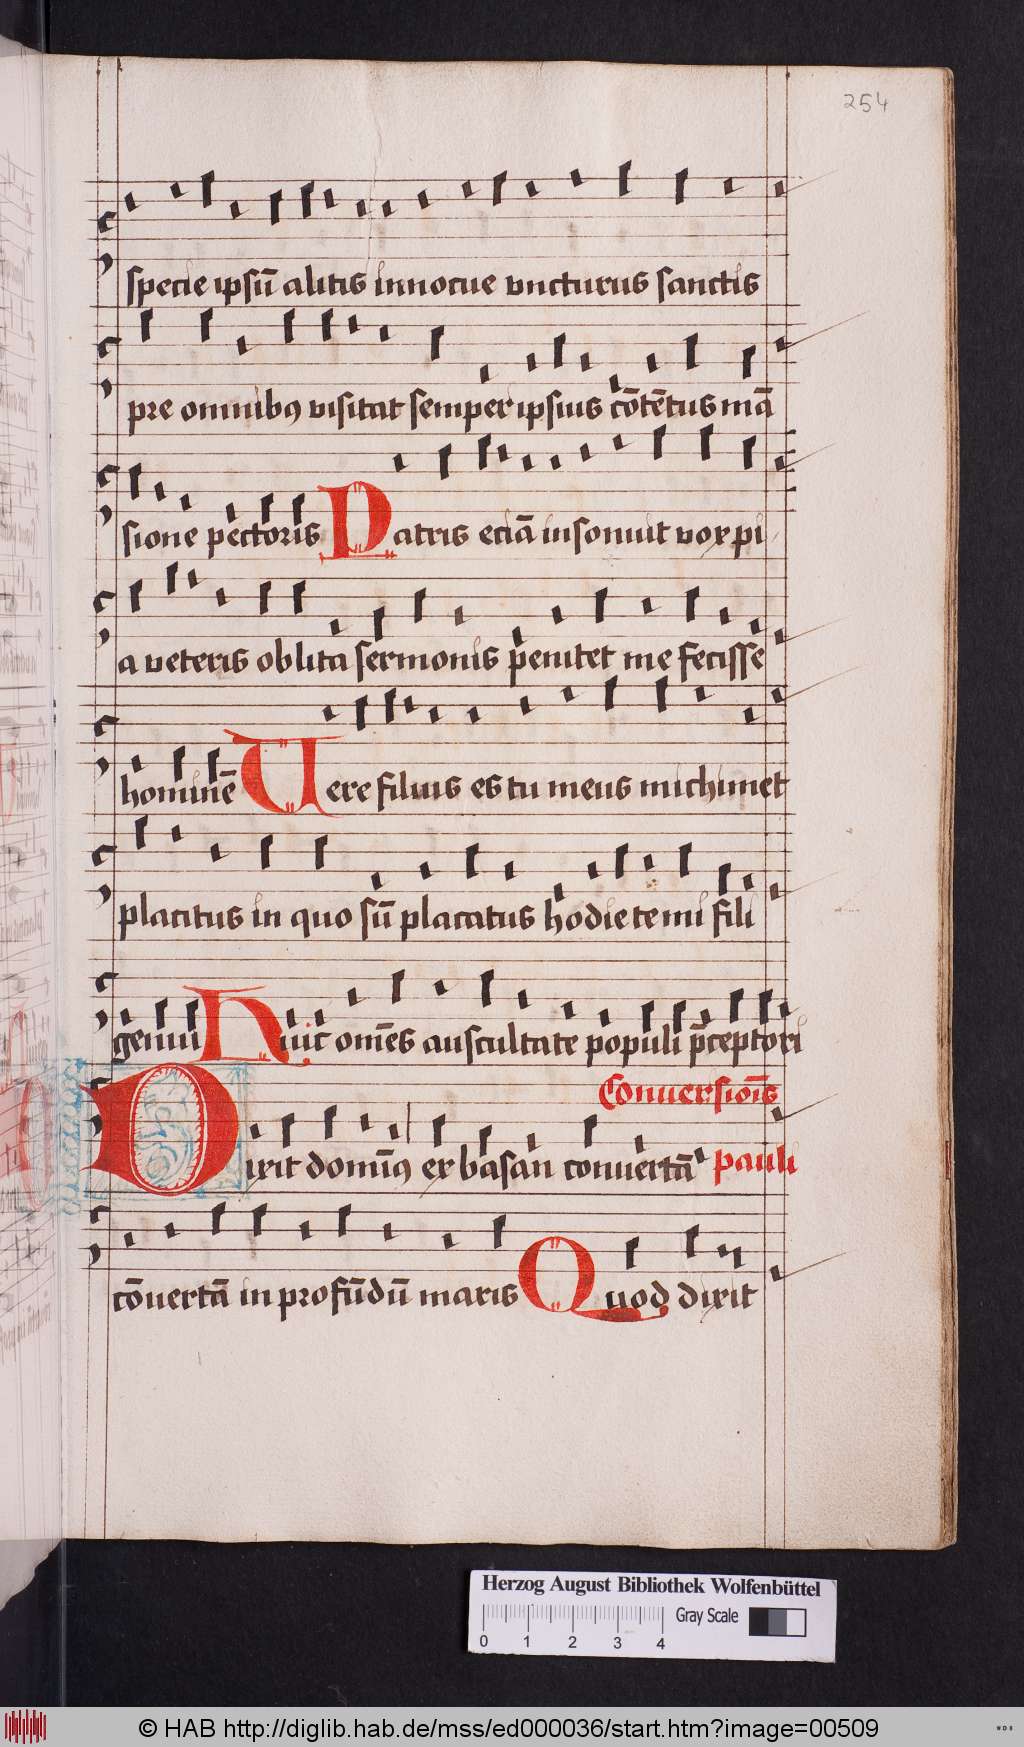 254
specie ipsu᷑ alitis innocue vncturus sanctis
pre omnibꝰ visitat semper ipsius co᷑te᷑tus ma᷑
sione pectoris Patris ecia᷑ insonuit vox pi
a veteris oblita sermonis penitet me fecisse
homine᷑ Uere filius es tu meus michimet
placitus in quo su᷑ placatus hodie te mi fili
genui Huic om̅es auscultate populi p̅ceptori
Conuersio᷑is
Dixit domi᷑ꝰ ex basan conuerta᷑ pauli
co᷑uerta᷑ in profu᷑du᷑ maris Quod dixit
Herzog August Bibliothek Wolfenbüttel
Gray Scale
0 1 2 3 4
© HAB http://diglib.hab.de/mss/ed000036/start.htm?image=00509